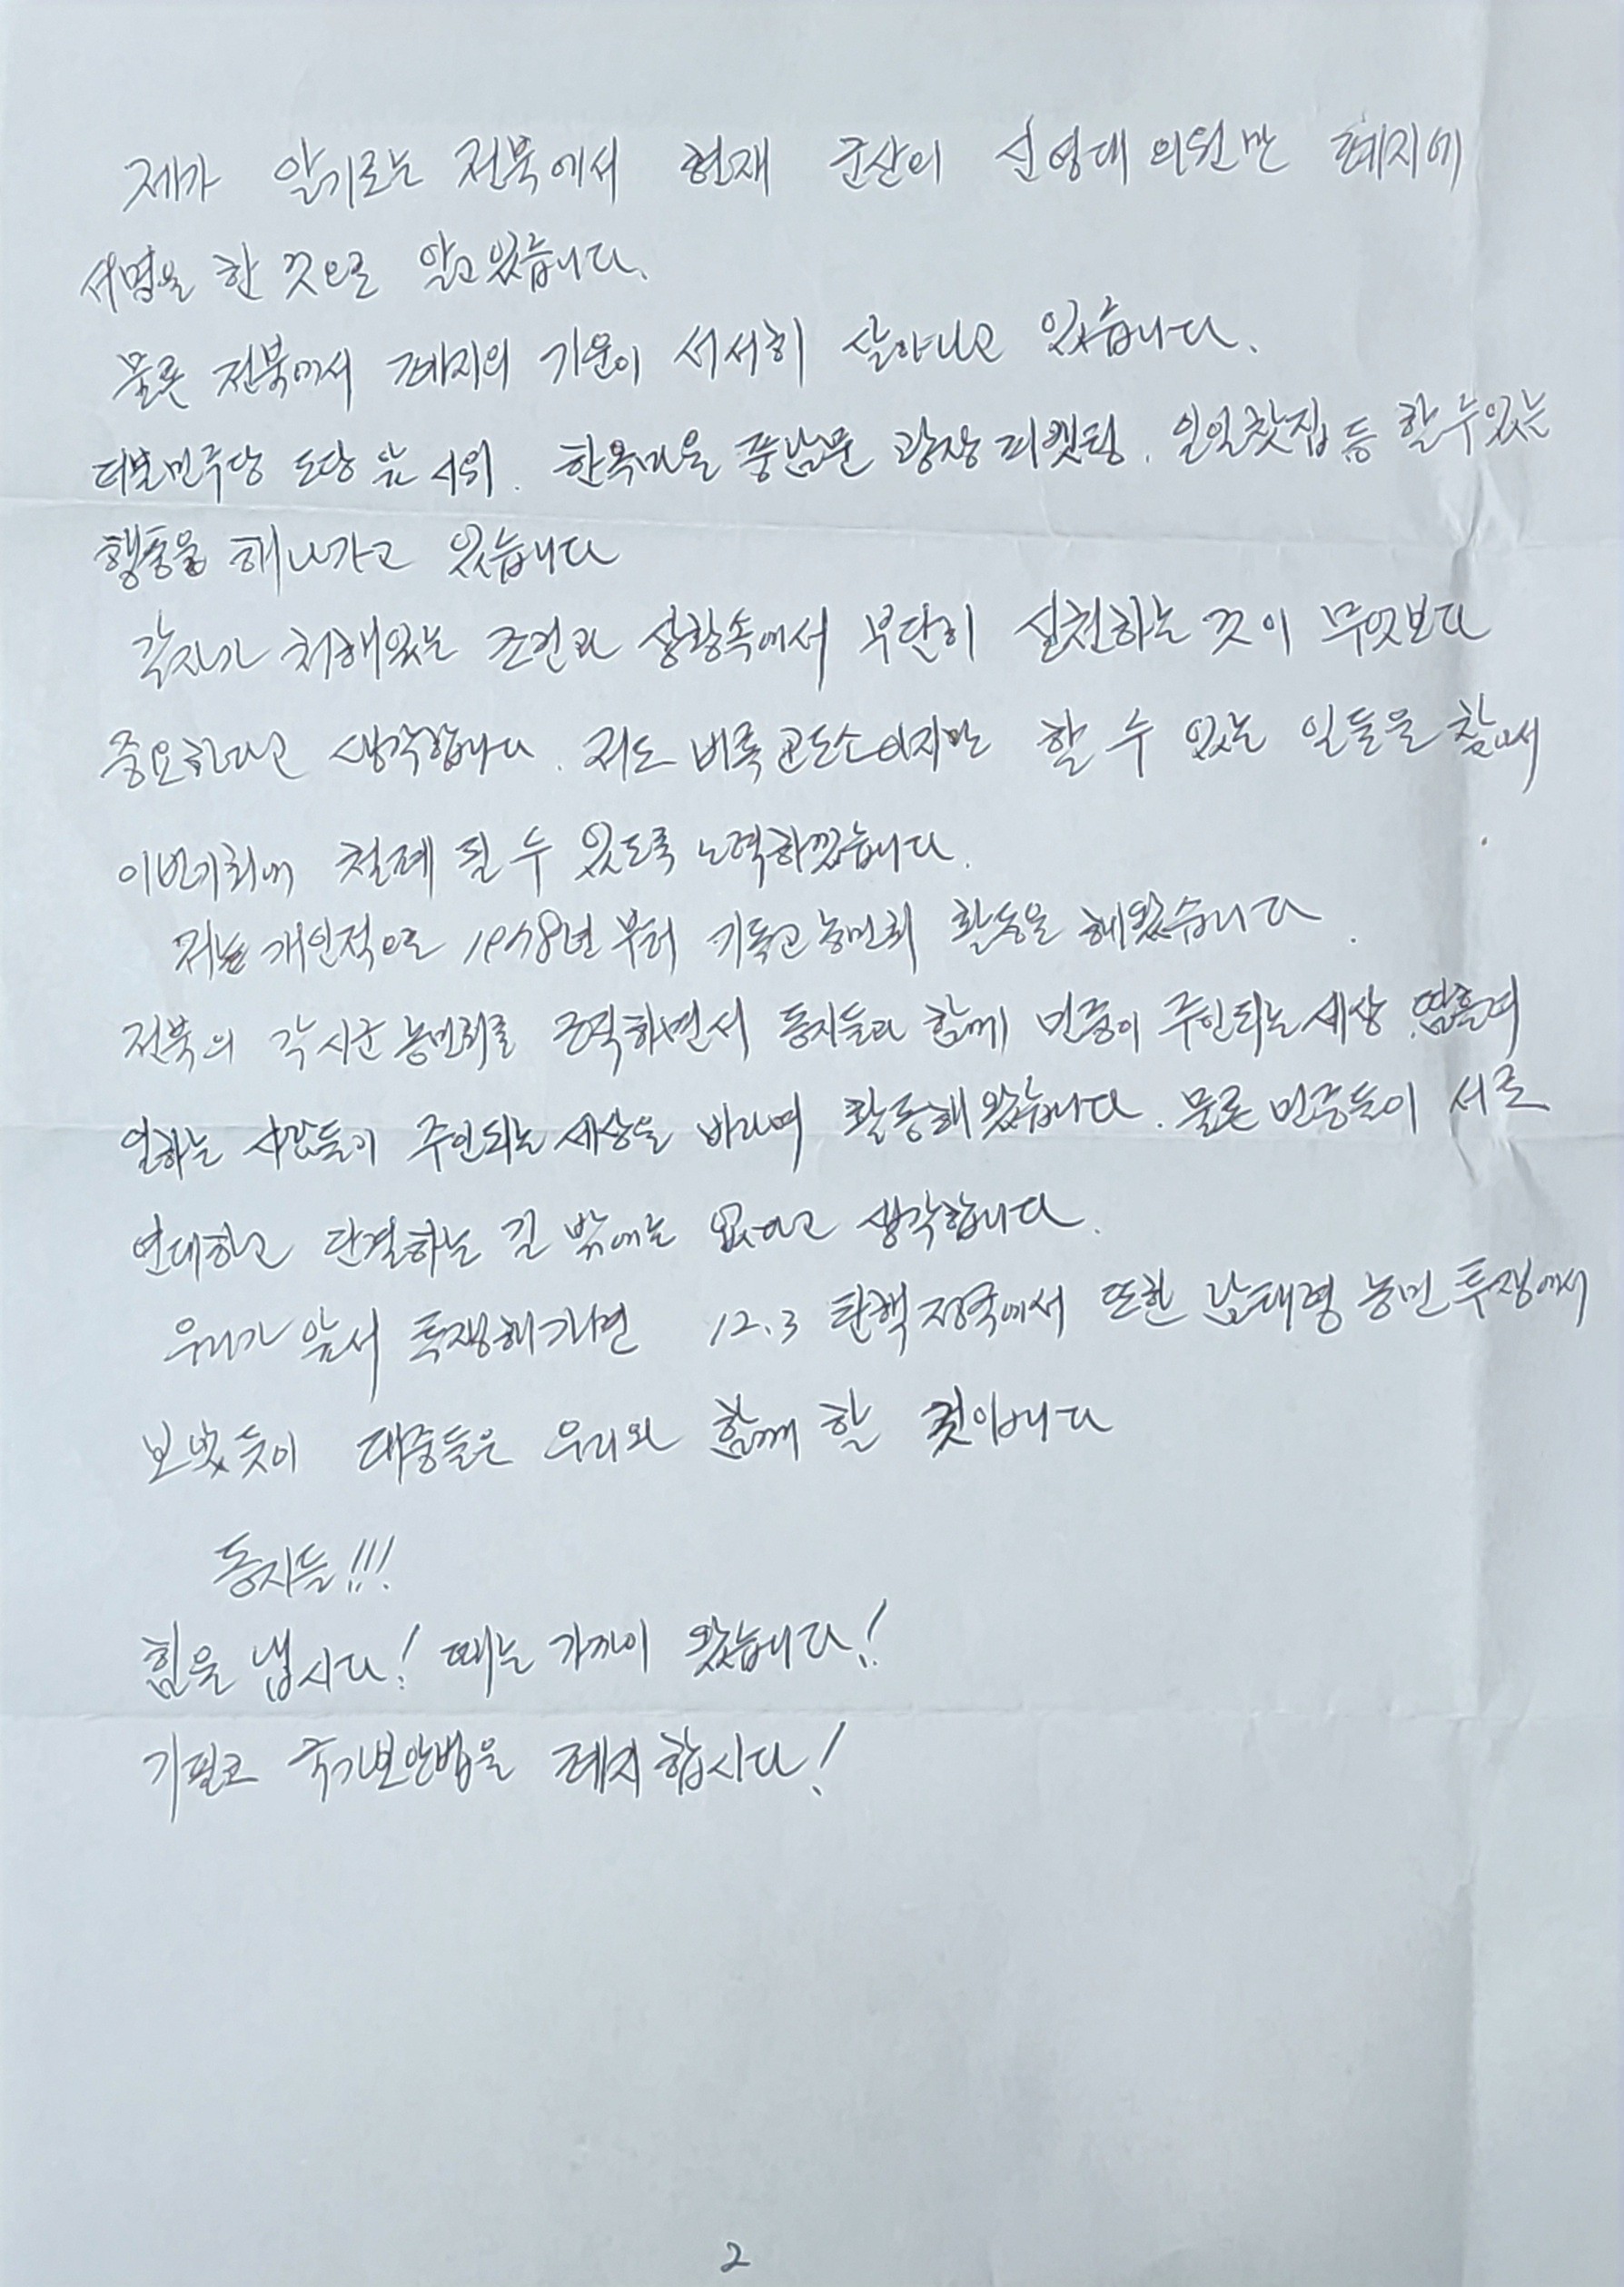 제가 알기로는 전북에서 현재 군산의 신영대 의원만 폐지에
서명을 한 것으로 알고있습니다.
물론 전북에서 폐지의 기운이 서서히 살아나고 있습니다.
더불민주당 도당 앞 시위. 한옥마을 풍남문 광장 피켓팅. 일일찻집 등 할 수 있는
행동을 해나가고 있습니다
각자가 처해있는 조건과 상황속에서 부단히 실천하는 것이 무엇보다
중요하다고 생각합니다. 저도 비록 교도소이지만 할 수 있는 일들을 찾아서
이번기회에 철폐 될 수 있도록 노력하겠습니다.
저는 개인적으로 1978년 부터 기독교농민회 활동을 해왔습니다.
전북의 각 시군 농민회를 조직하면서 동지들과 함께 민중이 주인되는 세상 땀흘려
일하는 사람들이 주인되는 세상을 바라며 활동해 왔습니다. 물론 민중들이 서로
연대하고 단결하는 길 밖에는 없다고 생각합니다.
우리가 앞서 투쟁해가면 12.3 탄핵 정국에서 또한 남태령 농민 투쟁에서
보았듯이 대중들은 우리와 함께 할 것이빈다
동지들!!!
힘을 냅시다! 때는 가까이 왔습니다!
기필코 국가보안법을 폐지 합시다!
2